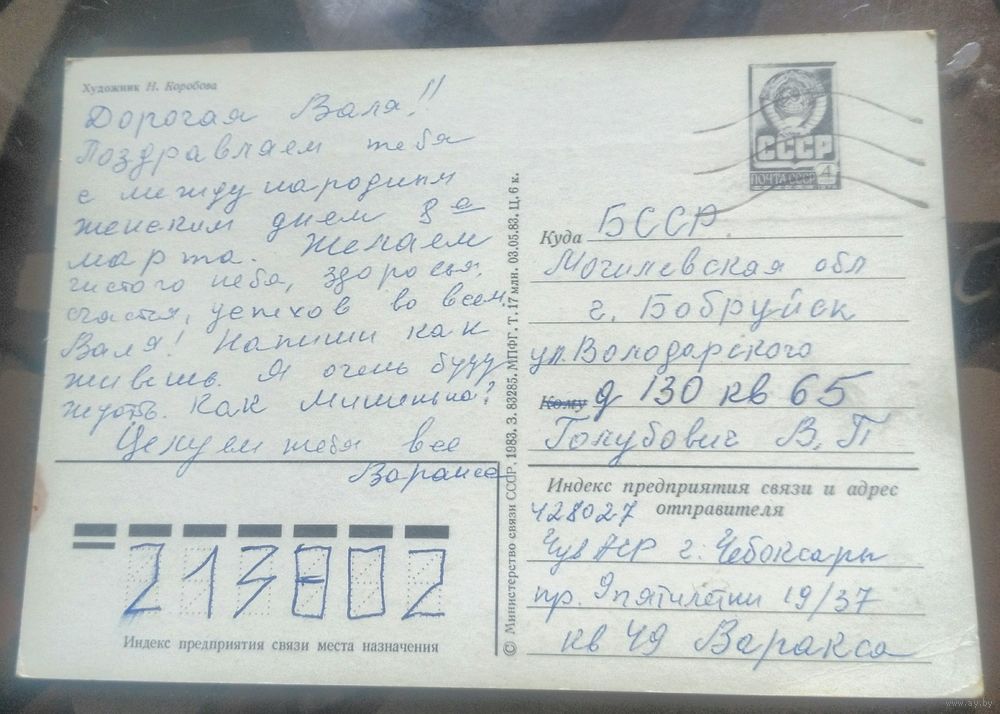 Художник Н. Коробова
Дорогая Валя!!
Поздравляем тебя
с международным
женским днем 8е
марта. Желаем
чистого неба, здоровья,
счастья, успехов во всем.
Валя! Напиши как
живешь. Я очень буду
ждать. Как Мишенька?
Целуем тебя все
Варакса
Индекс предприятия связи места назначения
213802
© Министерство связи СССР. 1983. З. 83285. МПФГ. Т. 17 млн. 03.05.83. Ц. 6 к.
СССР
ПОЧТА СССР 4
Куда БССР
Могилевская обл
г. Бобруйск
ул. Володарского
Кому д 130 кв 65
Голубович В. П
Индекс предприятия связи и адрес
отправителя
428027
Чув АСР г. Чебоксары
пр. 9 пятилетки 19/37
кв 49 Варакса
www.ay.by